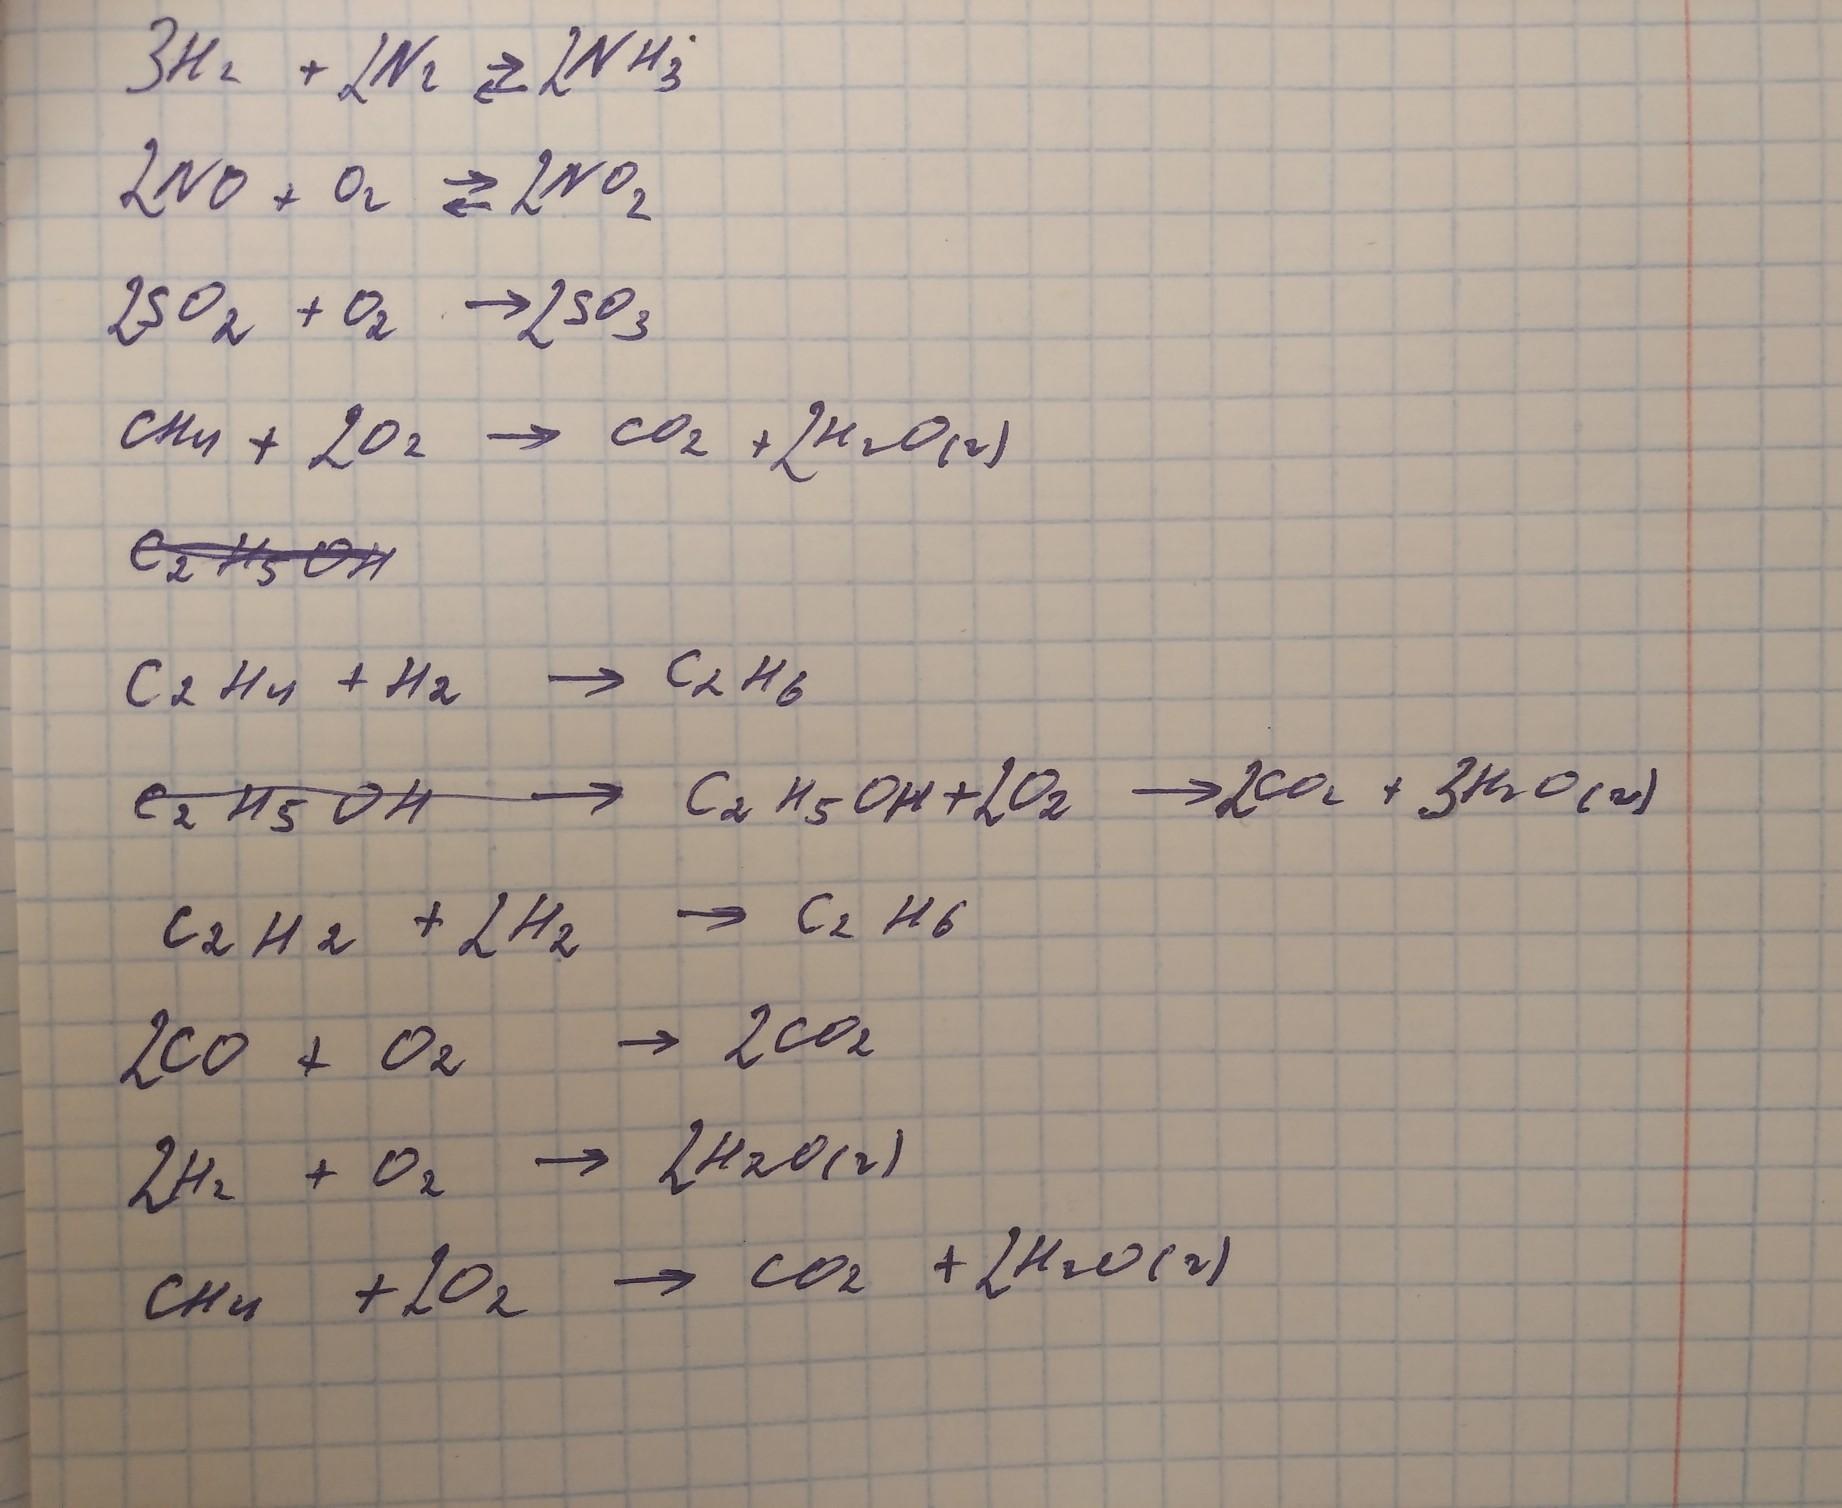 3H2 + 2N2 ⇄ 2NH3
2NO + O2 ⇄ 2NO2
2SO2 + O2 → 2SO3
CH4 + 2O2 → CO2 + 2H2O(г)
C2H5OH
C2H4 + H2 → C2H6
C2H5OH → C2H5OH + 2O2 → 2CO2 + 3H2O(г)
C2H2 + 2H2 → C2H6
2CO + O2 → 2CO2
2H2 + O2 → 2H2O(г)
CH4 + 2O2 → CO2 + 2H2O(г)